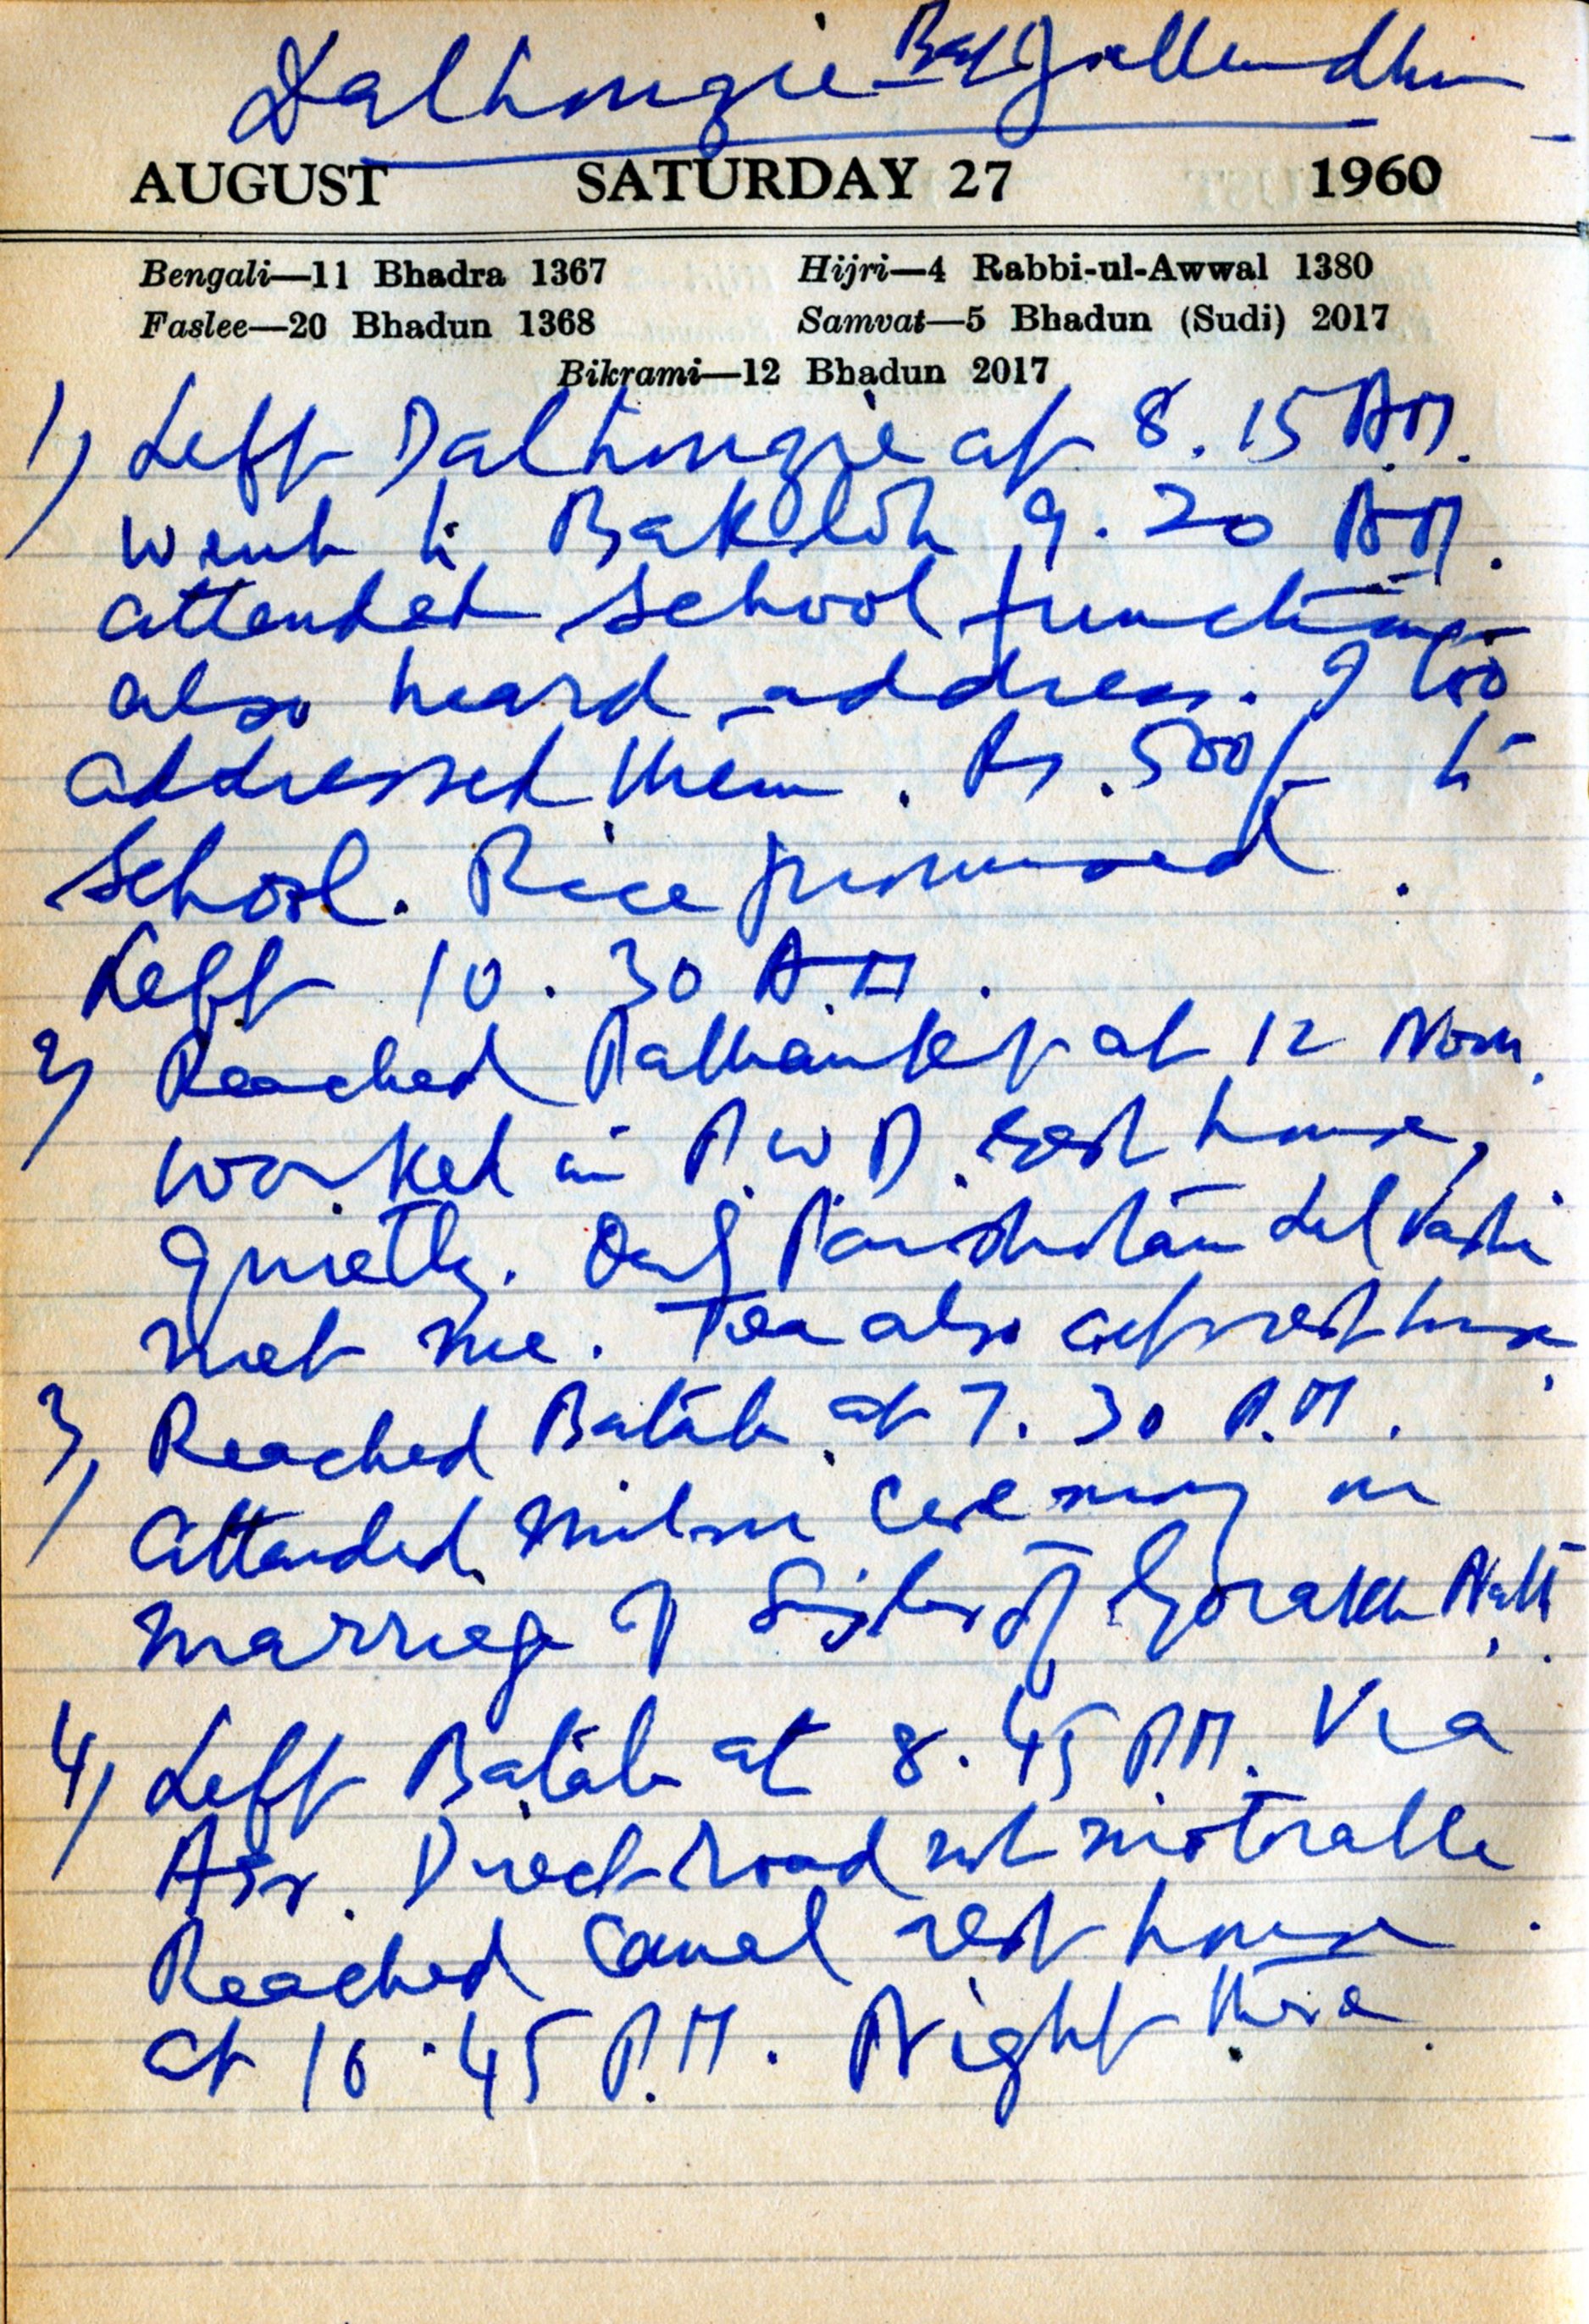 Dalhousie - Jullundhur
AUGUST SATURDAY 27 1960
Bengali—11 Bhadra 1367 Hijri—4 Rabbi-ul-Awwal 1380
Faslee—20 Bhadun 1368 Samvat—5 Bhadun (Sudi) 2017
Bikrami—12 Bhadun 2017
1) Left Dalhousie at 8.15 AM.
went to Bakloh 9.20 AM.
attended school function
also heard address. I too
addressed them. Rs. 500/- to
school. Rice promised.
Left 10.30 A.M.
2) Reached Pathankot at 12 Noon.
worked in P.W.D. rest house,
quietly. Only Lal
met me. Tea also at rest house.
3) Reached Batala at 7.30 P.M.
attended Milni ceremony in
marriage of Sister of Gorakh Nath.
4) Left Batala at 8.45 P.M. Via
Asr. Direct road not motorable.
Reached Canal rest house
at 10.45 P.M. Night there.